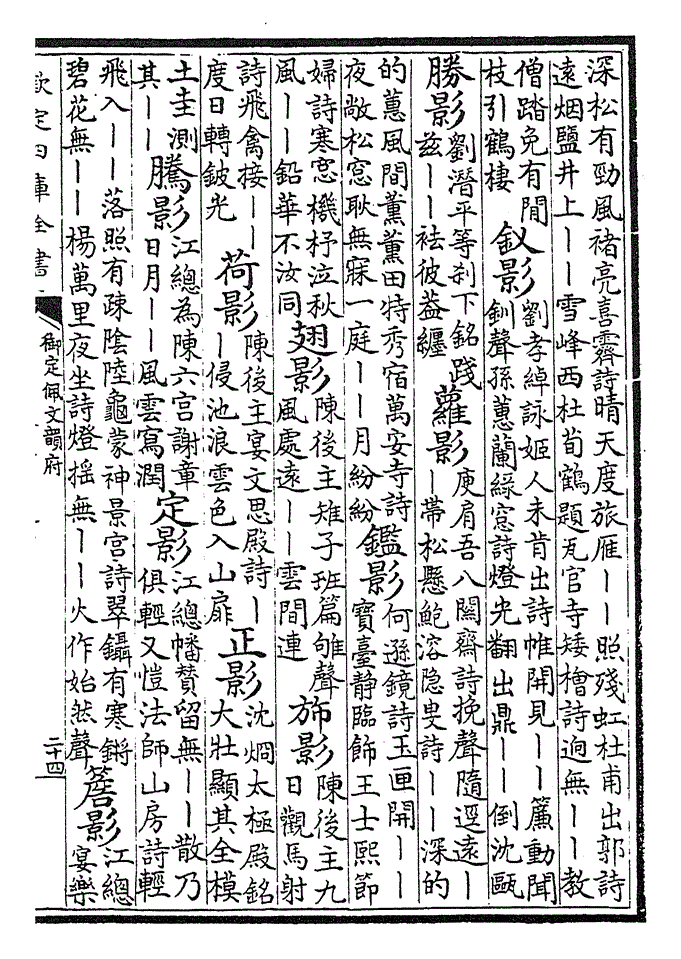 深松有勁風褚亮喜霽詩晴天度旅雁丨丨照殘虹杜甫出郭詩
遠烟鹽井上丨丨雪峰西杜荀鶴題瓦官寺矮檜詩逈無丨丨教
僧踏免有閒
枝引鶴棲
釵影
劉孝綽詠姬人未肯出詩帷開見丨丨簾動聞
釧聲孫蕙蘭緑窻詩燈光翻出鼎丨丨倒沈甌
勝影
劉潛平等刹下銘踐
兹丨丨袪彼葢纏
蘿影
庾肩吾八關齋詩挽聲隨逕遠丨
丨帶松懸鮑溶隐叟詩丨丨深的
的蕙風間薰薰田特秀宿萬安寺詩
夜敞松窻耿無寐一庭丨丨月紛紛
鑑影
何遜鏡詩玉匣開丨丨
寶臺静臨飾王士熙節
婦詩寒窻機杼泣秋
風丨丨鉛華不汝同
翅影
陳後主雉子班篇雊聲
風處遠丨丨雲間連
斾影
陳後主九
日觀馬射
詩飛禽接丨丨
度日轉鈹光
荷影
陳後主宴文思殿詩丨
丨侵池浪雲色入山扉
正影
沈烱太極殿銘
大壯顯其全模
土圭測
其丨丨
騰影
江總為陳六宫謝章
日月丨丨風雲寫潤
定影
江總幡贊留無丨丨散乃
俱輕又愷法師山房詩輕
飛入丨丨落照有疎陰陸龜蒙神景宫詩翠鑷有寒鏘
碧花無丨丨楊萬里夜坐詩燈摇無丨丨火作始然聲
簷影
江總
宴樂
欽定四庫全書
御定佩文韻府
二十四